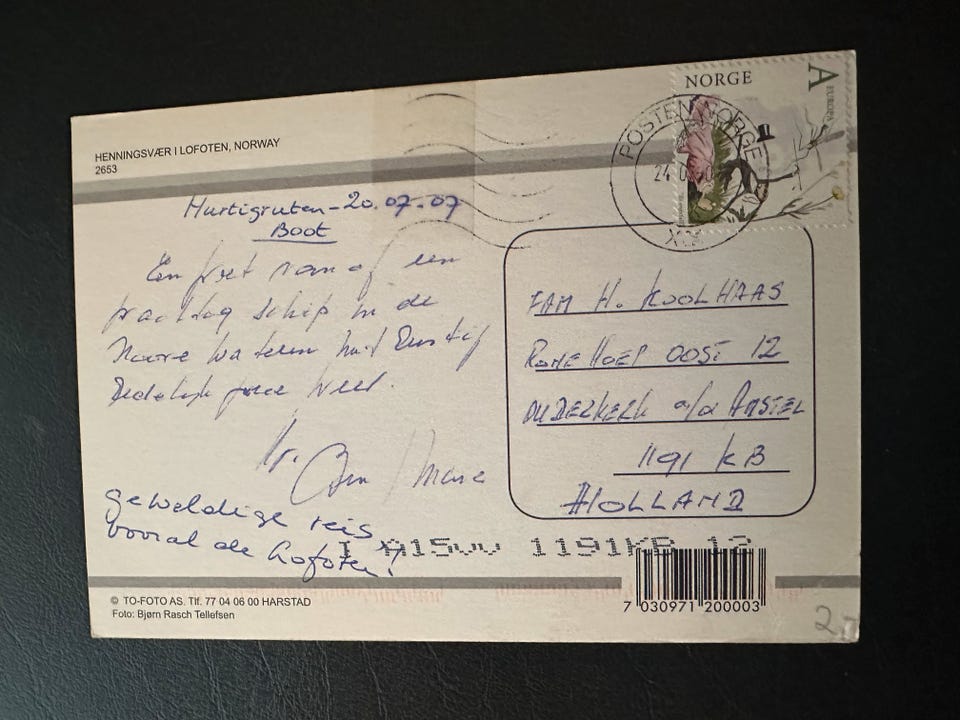 HENNINGSVÆR I LOFOTEN, NORWAY
2653
NORGE
A
EUROPA
POSTEN NORGE
24
Hurtigruten - 20.07.07
Boot
Een groet vanaf een
prachtig schip in de
Noorse wateren met
veel.
Gr. Ben
geweldige reis
vooral de Lofoten!
FAM H. KOOLHAAS
OOST 12
OUDERKERK a/d AMSTEL
1191 KB
HOLLAND
1191KB 12
© TO-FOTO AS. Tlf. 77 04 06 00 HARSTAD
Foto: Bjørn Rasch Tellefsen
7 030971 200003